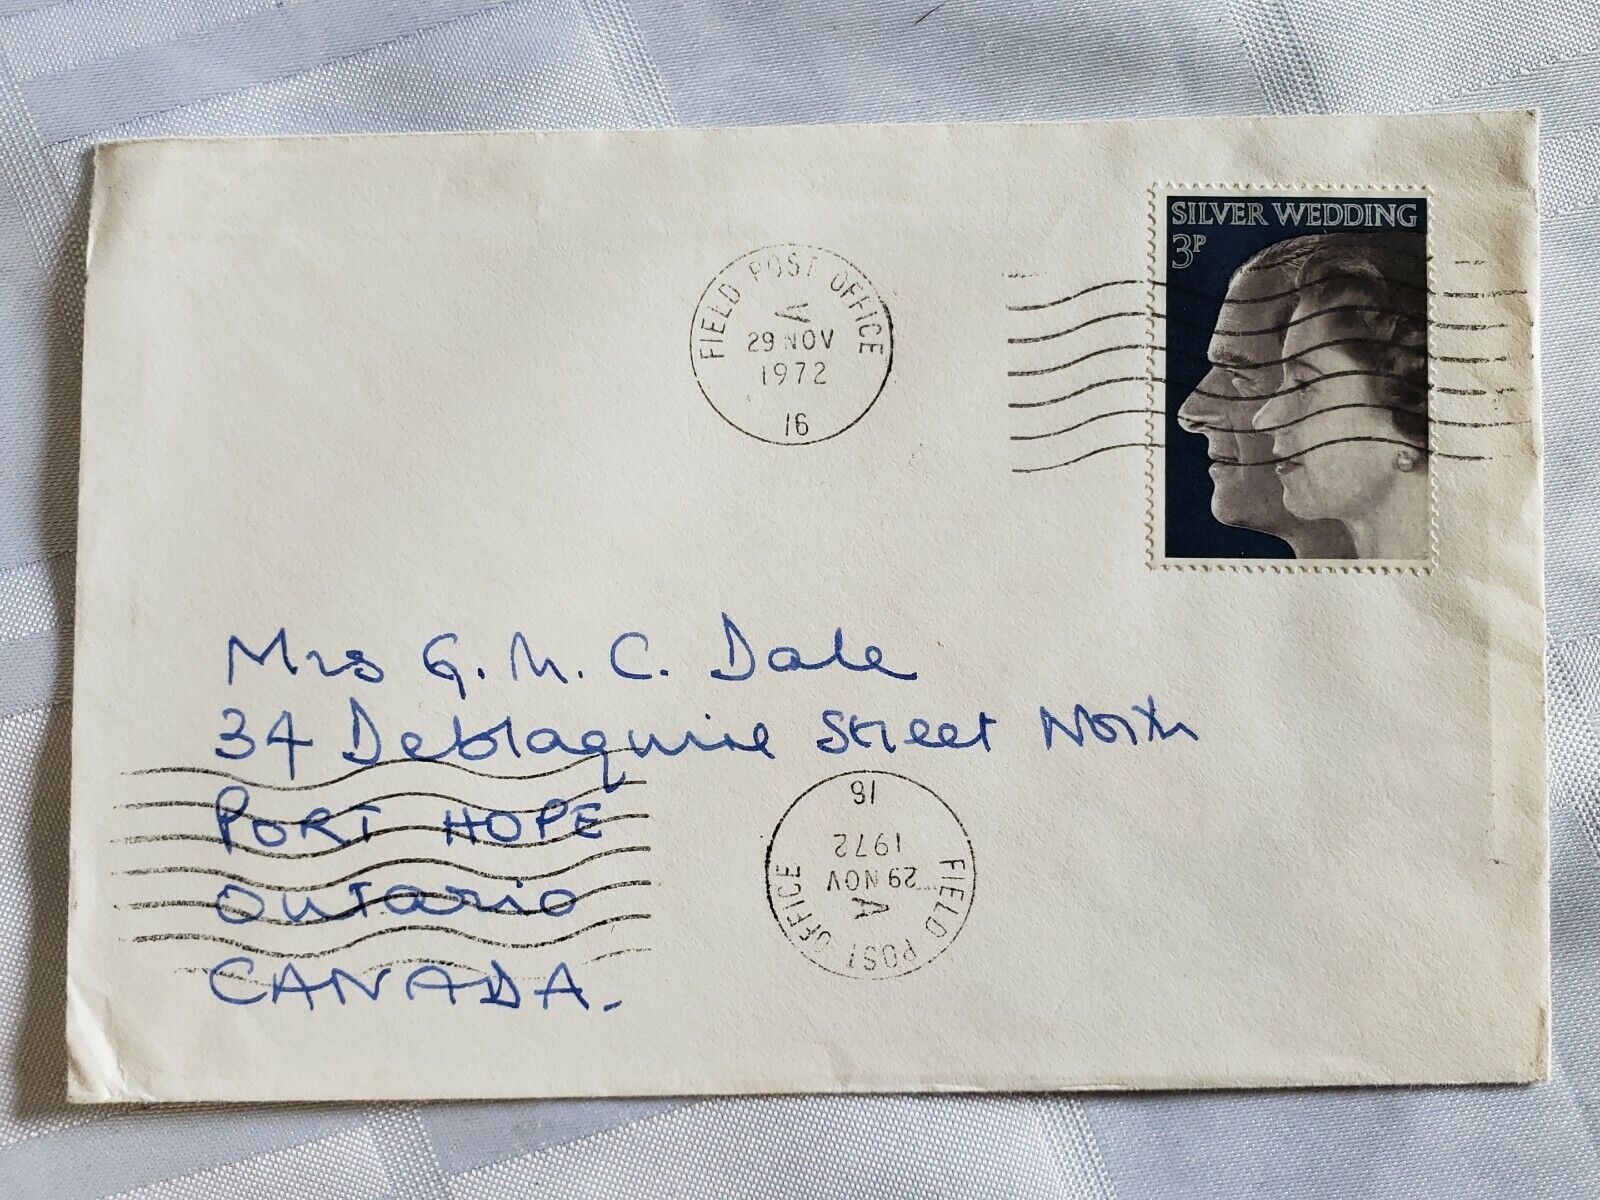 SILVER WEDDING
3P
FIELD POST OFFICE
A
29 NOV
1972
16
Mrs G. M. C. Dale
34 Deblaquire Street North
PORT HOPE
Ontario
CANADA.
FIELD POST OFFICE
A
29 NOV
1972
16